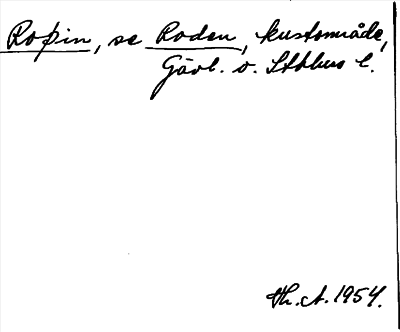 Roþin, se Roden, kustområde,
Gävl. o. Sthlms l.
Th.A. 1954.